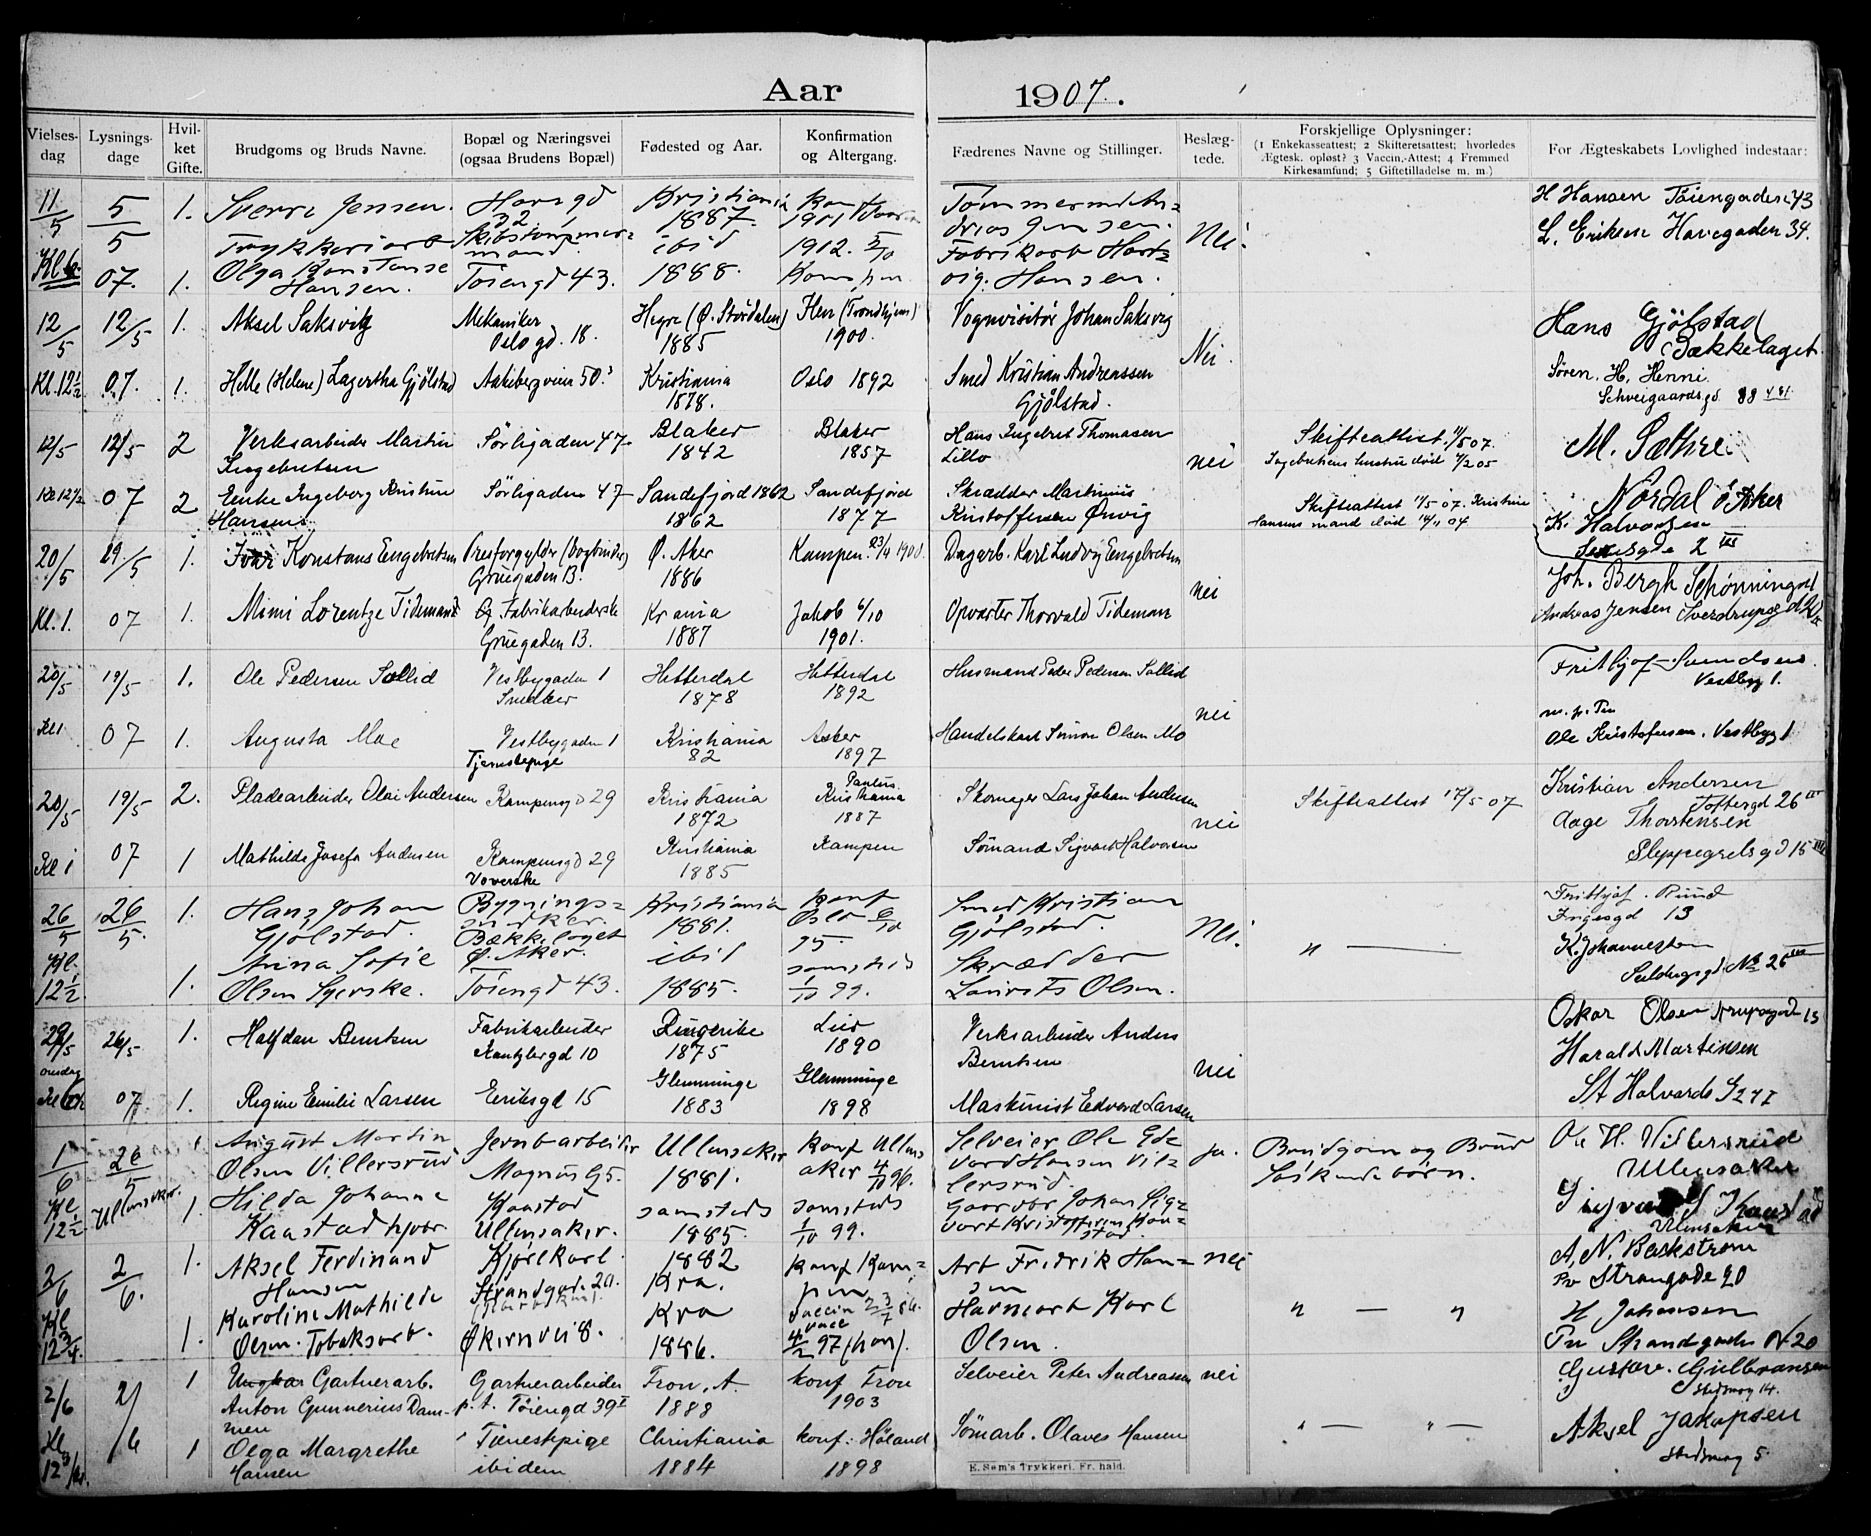 Aar 1907.
Vielses-dag
Lysnings-dage
Hvil-ket Gifte.
Brudgoms og Bruds Navne.
Bopæl og Næringsvei (ogsaa Brudens Bopæl)
Fødested og Aar.
Konfirmation og Altergang.
Fædrenes Navne og Stillinger.
Beslæg-tede.
Forskjellige Oplysninger: (1 Enkekasseattest; 2 Skifteretsattest; hvorledes Ægtesk. opløst? 3 Vaccin.-Attest; 4 Fremmed Kirkesamfund; 5 Giftetilladelse m. m.)
For Ægteskabets Lovlighed indestaar:
11/5 5/5 1. Sverre Jensen. Havegd Kristiania Konf Tømmermd An= H Hansen Tøiengaden 43
32 1887. 1901 drias Jensen. Nei. L. Eriksen Havegaden 34.
Trykkeriarb ibid 1902. 5/10 Fabrikarb Hart=
Kl 6. 07. 1. Olga Konstanse Hansen. Tøiengd 43. 1888. Kampen vig. Hansen.
12/5 12/5 1. Aksel Saksvig Mekaniker Hegre (Ø. Størdalen) (Trondhjem) Vognvisitør Johan Saksvig Hans Gjølstad
Oslo gd. 18. 1885 1900. Nei. Bækkelaget.
Kl. 12½ 07. 1. Helle (Helene) Lagertha Gjølstad Aakebergveien 50. Kristiania Oslo 1892 Smed Kristian Andreassen Søren. H. Henni.
1878. Gjølstad. Schweigaardsgd. 88
12/5 12/5 2 Verksarbeider Martin Sørligaden 47 Blaker Blaker Hans Ingebret Thomasen Skifteattest 11/5 07. M. Sæthre
Ingebretsen 1842 1857 Lillo nei Ingebretsens hustru død 11/2 05
Kl 12½ 07 2 Enke Ingeborg Kristine Sørligaden 47 Sandefjord 1862 Sandefjord Skrædder Martinius Skifteattest 11/5 07. Kristine Nordal Ø Aker
Hansens 1862 1877 Kristoffersen Ørvig Hansens mand død 04 K. Halvorsen
20/5 5 1. Konstans Engebretsen (Bogbinder) Ø. Aker Kampen 23/4 1900. Dagarb. Karl Ludvig Engebretsen 2 III
Gruegaden 13. 1886 nei Joh. Bergh Schønningsgd
Kl. 1. 07 1. Mimi Lorentze Tidemand Fabrikarbeiderske Krania Jakob 6/10 Opvarter Thorvald Tideman Andreas Jensen Sverdrupsgd
Gruegaden 13. 1887 1901.
20/5 19/5 1. Ole Pedersen Sollid Vestbygaden 1 Hitterdal Hitterdal Husmand Peder Pedersen Sollid Frithjof
Snedker 1878 1892 nei Vestbyg 1.
m. p. Pen
Kl 1 07 1. Augusta Moe Vestbygaden 1 Kristiania Asker Handelskarl Simon Olsen Mo Ole Kristofersen. Vestbyg 1
Tjenestepige 82 1897
20/5 19/5 2. Pladearbeider Olai Andersen Kampensgd 29 Kristiania Paulus Kristiania Skomager Lars Johan Andersen Skifteattest 17/5 07 Kristian Andersen
1872 1887 nei Toftesgd 26 III
Aage Thorstensen
Kl 1 07 1 Mathilde Josefa Andersen Kampensgd 29 Kristiania Kampen Sømand Sigvart Halvorsen Sleppegrelsgd 15 III
Væverske 1885
26/5 26/5. 1. Hans Johan Bygnings= Kristiania Konf Smed Kristian Frithjof. Rund
Gjølstad. snedker. 1881. Oslo 6/10 Gjølstad. Nei. " — Ingesgd 13
Bækkelaget 95. K. Johannesen
Kl. Anna Sofie Ø. Aker. ibid samsteds Skrædder Seildugsgd No 26 III
12½ 1. Olsen Syerske. Tøiengd 43. 1885. 1/10 99. Laurits Olsen.
29/5 26/5 1. Halfdan Berntsen Fabrikarbeider Ringerike Lier Verksarbeider Anders Oskar Olsen 15
onsdag Rantzbergd 10 1875 1890 Berntsen nei Harald Martinsen
07 1. Regine Emilie Larsen Eriksgd 15 Glemminge Glemminge St Halvards G 27 I
1883 1898 Maskinist Edvard Larsen
1/6 26/5 1 August Martin Jernbarbeider Ullensaker Konf Ullens Selveier Ole Ed= ja. Brudgom og Brud Ole H. Villersrud
Olsen Villersrud Magnus G 5. 1881. aker 4/10 96. vard Hansen Vil= Søskendebørn. Ullensaker
lersrud.
Kl Ullensaker. 1. Hilda Johanne Kaastad samsteds samsteds Gaardbr Johan Sig=
12½ Kaastad hjvær. Ullensaker. 1885. 1/10 99. vart Kristoffersen Kaa= stad. Ullensaker
2/6 2/6. 1. Aksel Ferdinand Kjørekarl. 1882 Konf Kam= Arb Fridrik Han= nei A. N. Backstrøm
Hansen Strandgad. 20. Kra. pen sen Strangade 20
Kl Karoline Mathilde Kra vaccin Havnearb Karl " — " H Johansen
12¾. 1. Olsen. Tobaksarb. Økernvei 8. 1886. 97 (han). Olsen. Strandgaden No 20
2/6 2/6 1 Ungkar Gartnerarb. Gartnerarbeider Fron, A. konf Fron Selveier Peter Andreassen nei Gustav. Gulbransen
Anton Gunnerius Dam- p. t. Tøiengd 39 I 1888 1903 14.
men
Kl 1 Olga Margrethe Tjenestpige Christiania konf. Høland Sømarb. Olaves Hansen " — " — Aksel Jakopsen
12¾ Hansen ibidem 1884 1898 5
E. Sem's Trykkeri. Fr. hald.